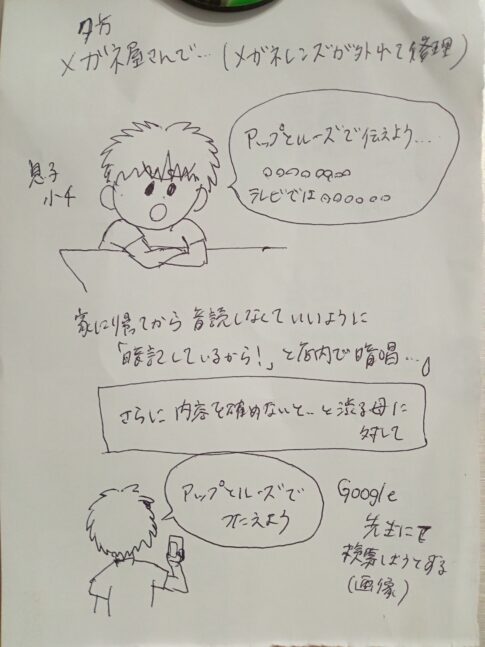 夕方
メガネ屋さんで…(メガネレンズが外れて修理)
アップとルーズで伝えよう…
○○○○○○○○
テレビでは○○○○○○
息子
小4
家に帰ってから音読しなくていいように
「暗記しているから!」と店内で暗唱…。
さらに内容を確めないと…と渋る母に
対して
アップとルーズで
つたえよう
Google
先生にて
検索しようとする
(画像)